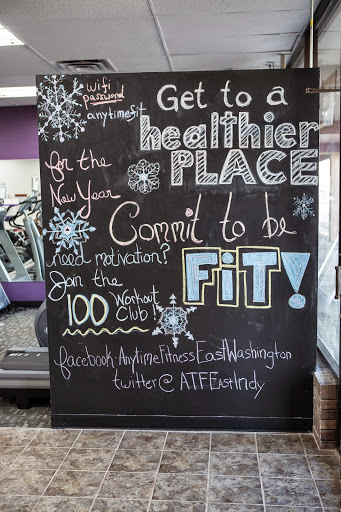 wifi
password
anytimefit
Get to a
healthier
PLACE
for the
New Year
Commit to be
FiT!
need motivation?
Join the
100 Workout
Club!
facebook: AnytimeFitnessEastWashington
twitter@ATFEastIndy